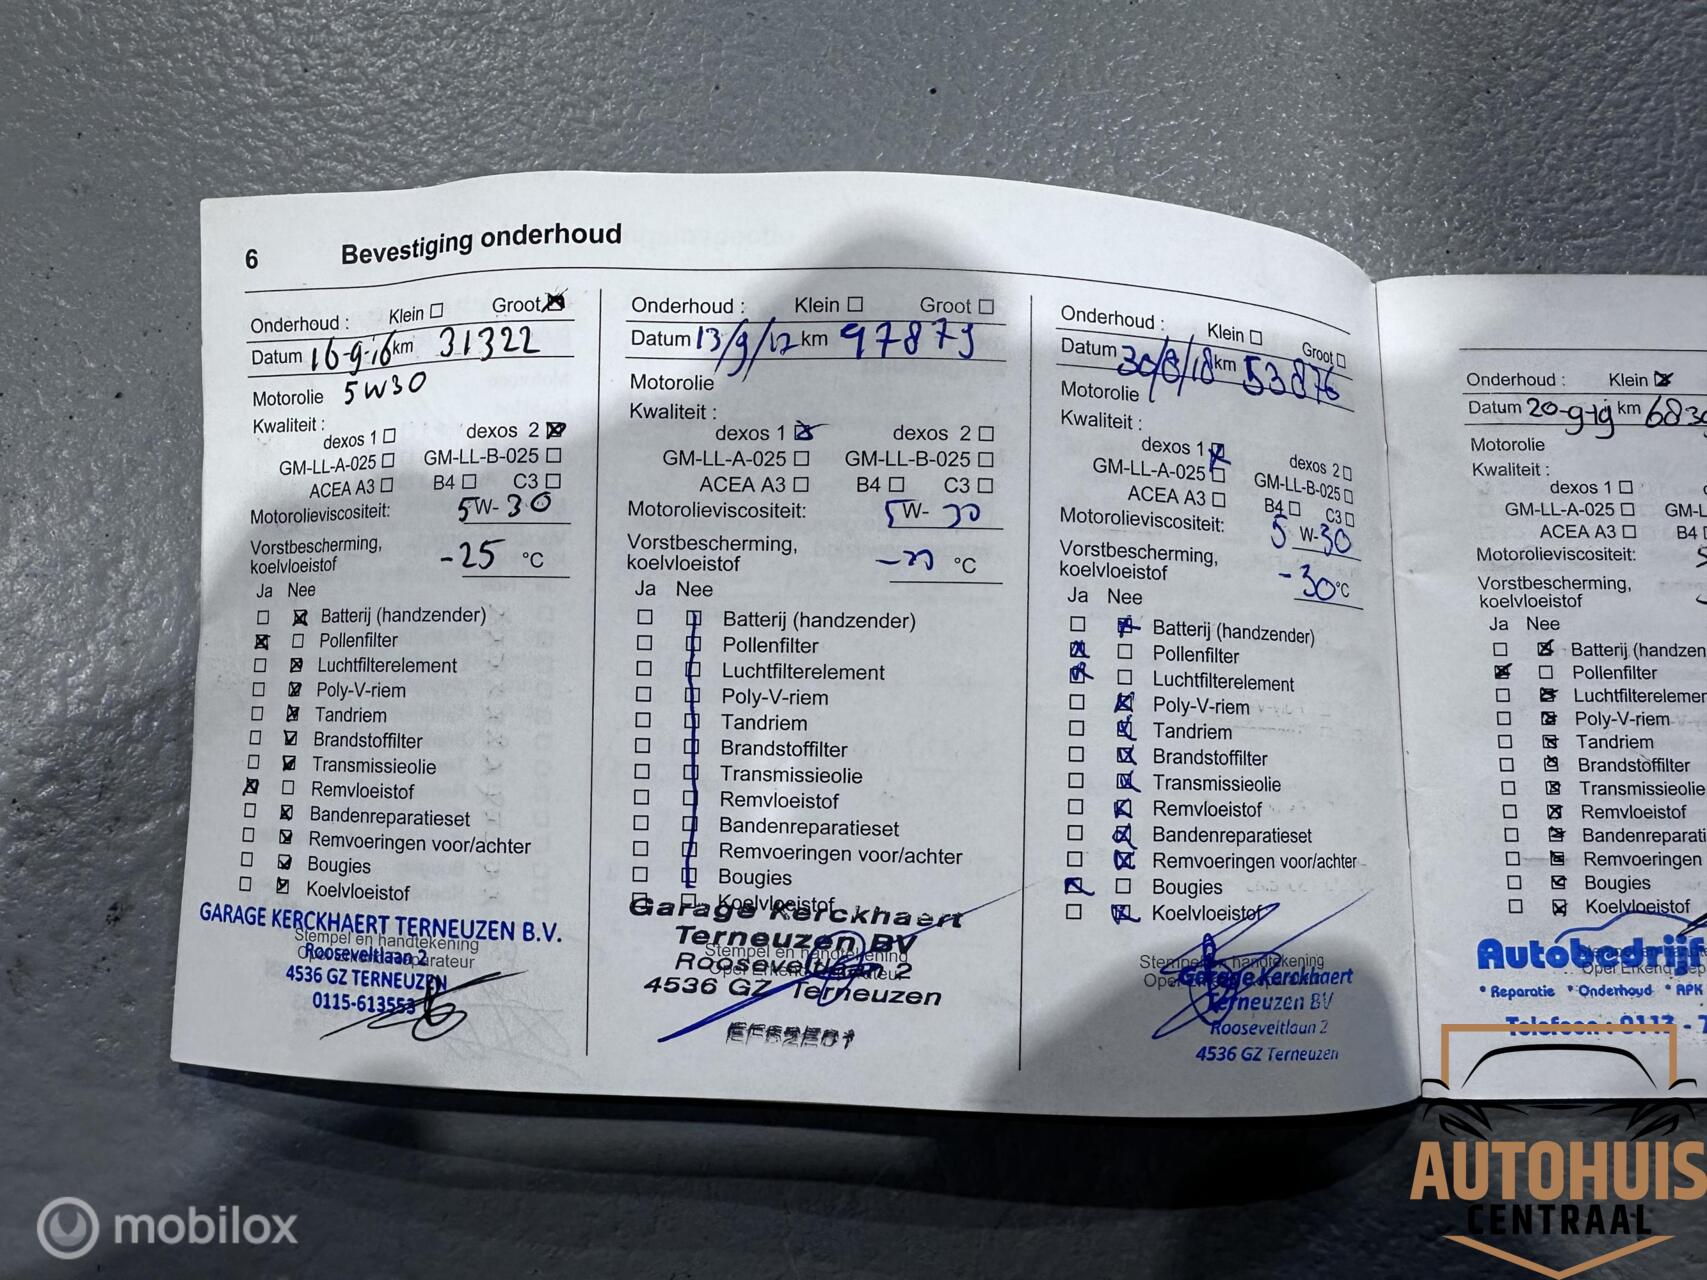 6 Bevestiging onderhoud
Onderhoud : Klein Groot
Datum 16-9-16 km 31322
Motorolie 5W30
Kwaliteit :
dexos 1 dexos 2
GM-LL-A-025 GM-LL-B-025
ACEA A3 B4 C3
Motorolieviscositeit: 5 W- 30
Vorstbescherming,
koelvloeistof -25 °C
Ja Nee
Batterij (handzender)
Pollenfilter
Luchtfilterelement
Poly-V-riem
Tandriem
Brandstoffilter
Transmissieolie
Remvloeistof
Bandenreparatieset
Remvoeringen voor/achter
Bougies
Koelvloeistof
GARAGE KERCKHAERT TERNEUZEN B.V.
Stempel en handtekening
Rooseveltlaan 2
4536 GZ TERNEUZEN
0115-613553
Onderhoud : Klein Groot
Datum 13/9/17 km 97879
Motorolie
Kwaliteit :
dexos 1 dexos 2
GM-LL-A-025 GM-LL-B-025
ACEA A3 B4 C3
Motorolieviscositeit: 5 W- 30
Vorstbescherming,
koelvloeistof °C
Ja Nee
Batterij (handzender)
Pollenfilter
Luchtfilterelement
Poly-V-riem
Tandriem
Brandstoffilter
Transmissieolie
Remvloeistof
Bandenreparatieset
Remvoeringen voor/achter
Bougies
Koelvloeistof
Garage Kerckhaert
Terneuzen BV
Stempel en handtekening
Rooseveltlaan 2
4536 GZ Terneuzen
Onderhoud : Klein Groot
Datum 30/8/18 km 53876
Motorolie
Kwaliteit :
dexos 1 dexos 2
GM-LL-A-025 GM-LL-B-025
ACEA A3 B4 C3
Motorolieviscositeit: 5 W-30
Vorstbescherming,
koelvloeistof -30 °C
Ja Nee
Batterij (handzender)
Pollenfilter
Luchtfilterelement
Poly-V-riem
Tandriem
Brandstoffilter
Transmissieolie
Remvloeistof
Bandenreparatieset
Remvoeringen voor/achter
Bougies
Koelvloeistof
Stempel en handtekening
Garage Kerckhaert
Terneuzen BV
Rooseveltlaan 2
4536 GZ Terneuzen
Onderhoud : Klein
Datum 20-9-19 km 683
Motorolie
Kwaliteit :
dexos 1
GM-LL-A-025 GM-L
ACEA A3 B4
Motorolieviscositeit:
Vorstbescherming,
koelvloeistof
Ja Nee
Batterij (handzen
Pollenfilter
Luchtfilterelemer
Poly-V-riem
Tandriem
Brandstoffilter
Transmissieolie
Remvloeistof
Bandenreparati
Remvoeringen
Bougies
Koelvloeistof
Autobedrijf
* Reparatie * Onderhoud * APK
Telefoon : 0113 - 7
AUTOHUIS
CENTRAAL
mobilox